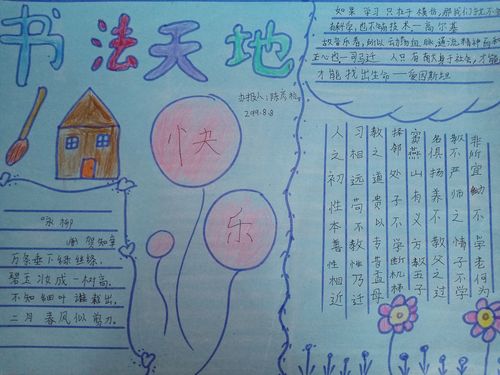 书法天地
办报人：陈
快
乐
咏柳
贺知章
万条垂下绿丝绦。
碧玉妆成一树高。
不知细叶谁裁出，
二月春风似剪刀。
如果学习只在于模仿，那我们就不会
有科学，也不会有技术，—高尔基
故音乐者，所以动荡血脉，通流精神而和
正心也—司马迁 人只有献身于社会，才能
才能找出生命——爱因斯坦
人之初性本善性相近
习相远苟不教性乃迁
教之道贵以专昔孟母
择邻处子不学断机杼
窦燕山有义方教五子
名俱扬养不教父之过
教不严师之惰子不学
非所宜幼不学老何为